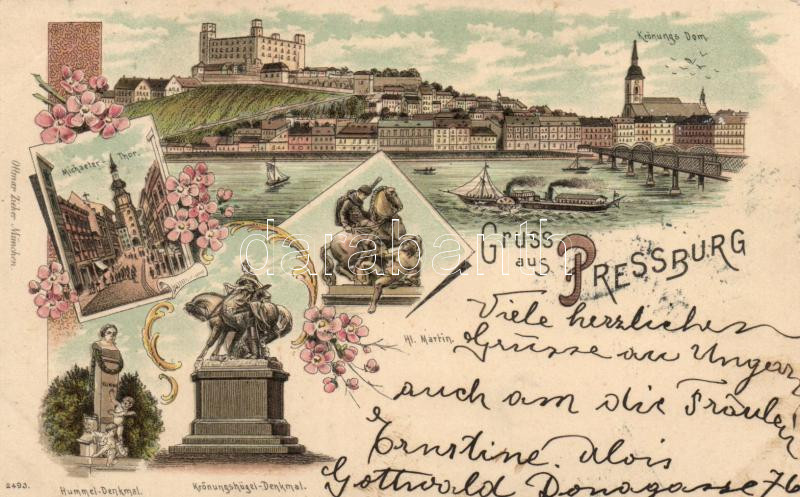 Krönungs Dom.
Michaeler-Thor.
Ottmar Zieher München.
Gruss
aus PRESSBURG
Hl. Martin.
darabanth
Viele herzlichen
Grüsse an Ungarn
auch am die Fräulein
Ernstine. Alois
Gottwald Donagasse 76
HUMMEL
2493.
Hummel-Denkmal.
Krönungshügel-Denkmal.